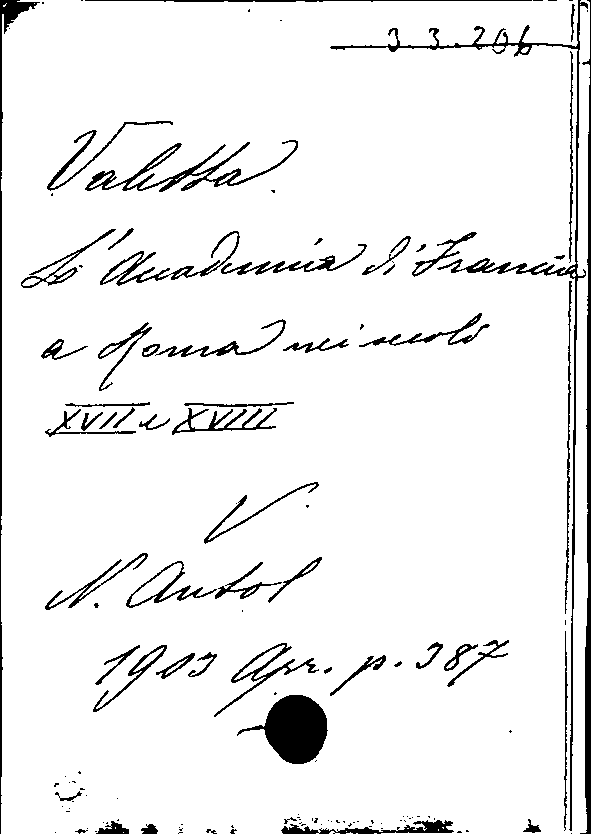 3.3.206
Valetta.
L'Accademia di Francia
a Roma nei secoli
XVII e XVIII
V.
N. Antol
1903 Apr. p. 387